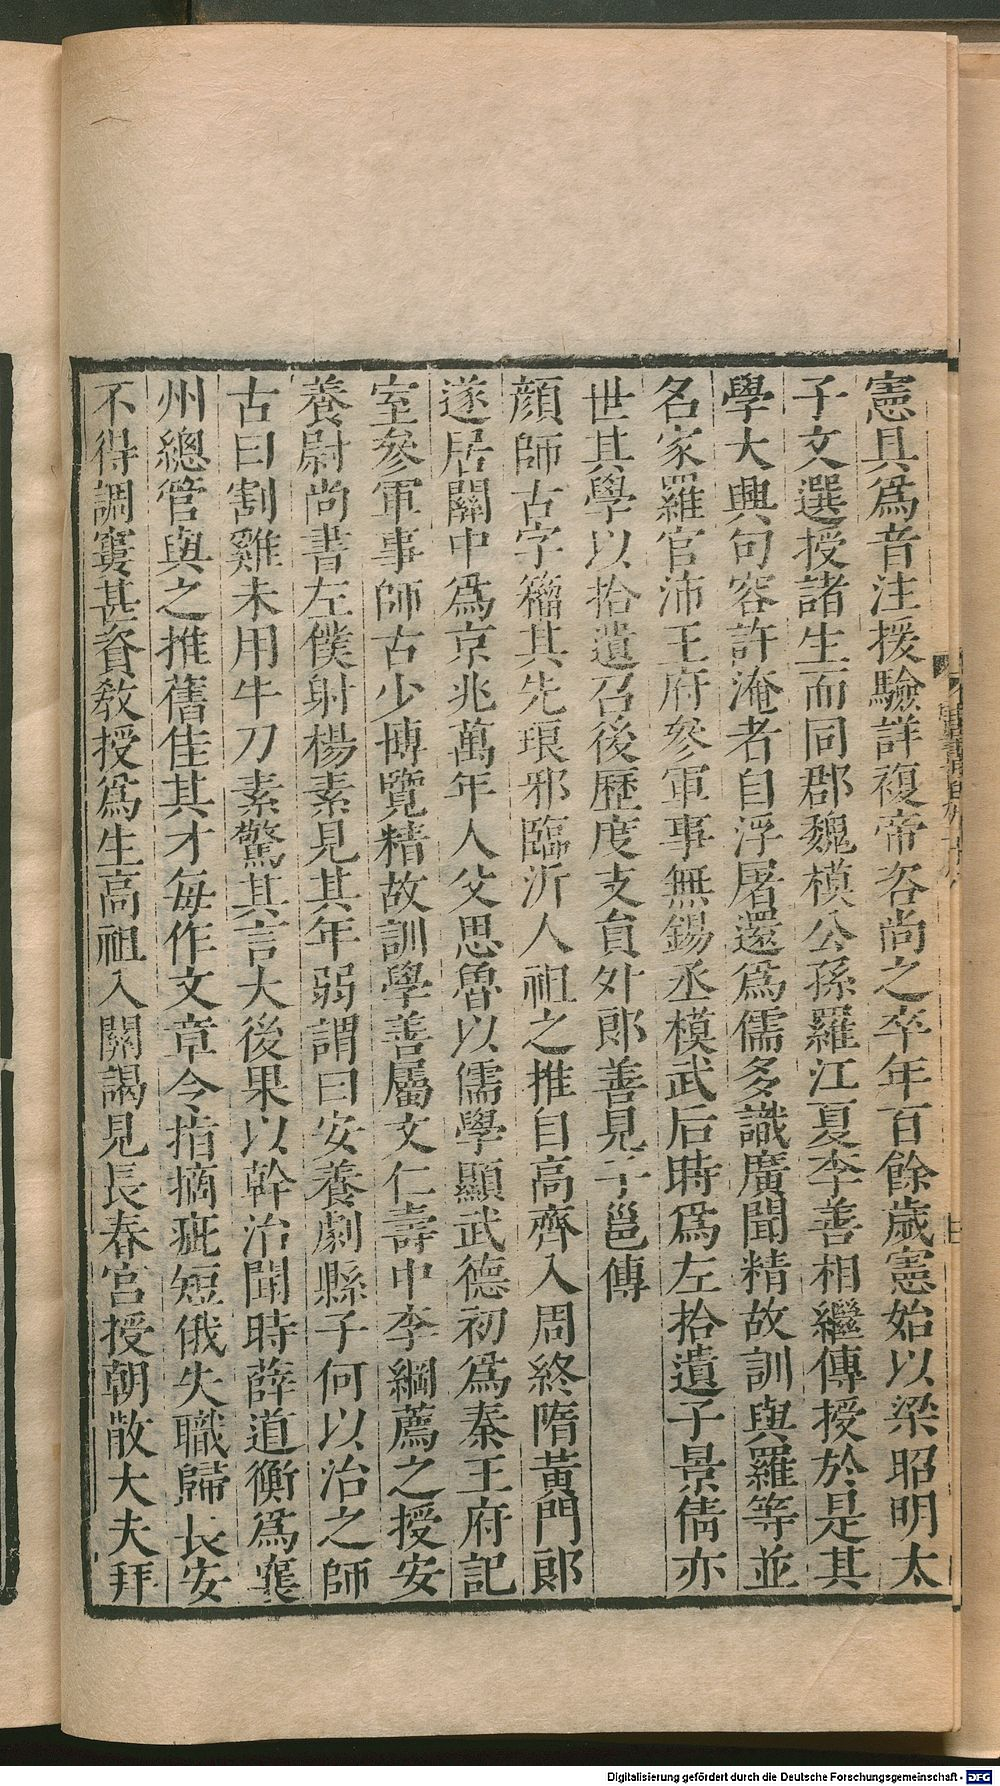 憲具爲音注援驗詳複帝咨尚之卒年百餘歲憲始以梁昭明太
子文選授諸生而同郡魏模公孫羅江夏李善相繼傳授於是其
學大興句容許淹者自浮屠還爲儒多識廣聞精故訓與羅等並
名家羅官沛王府參軍事無錫丞模武后時爲左拾遺子景倩亦
世其學以拾遺召後歷度支員外郎善見子邕傳
顏師古字籀其先琅邪臨沂人祖之推自高齊入周終隋黃門郎
遂居關中爲京兆萬年人父思魯以儒學顯武德初爲秦王府記
室參軍事師古少博覽精故訓學善屬文仁壽中李綱薦之授安
養尉尚書左僕射楊素見其年弱謂曰安養劇縣子何以治之師
古曰割雞未用牛刀素驚其言大後果以幹治聞時薛道衡爲襄
州總管與之推舊佳其才每作文章令指摘疵短俄失職歸長安
不得調窶甚資教授爲生高祖入關謁見長春宮授朝散大夫拜
Digitalisierung gefördert durch die Deutsche Forschungsgemeinschaft - DFG